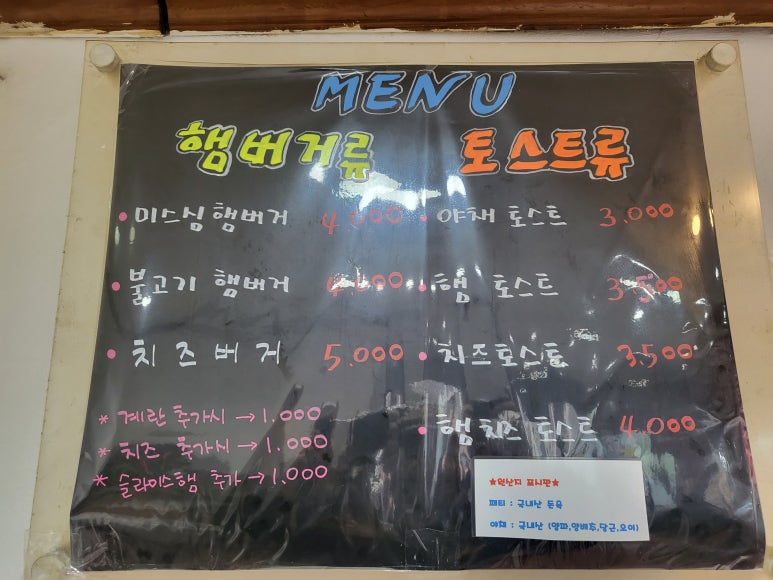 MENU
햄버거류
• 미스심햄버거 4.000
• 불고기 햄버거
• 치즈버거 5.000
* 계란 추가시 → 1.000
* 치즈 추가시 → 1.000
* 슬라이스햄 추가 → 1.000
토스트류
• 야채 토스트 3.000
• 햄 토스트 3.500
• 치즈토스트 3.500
• 햄치즈 토스트 4.000
★원산지 표시판★
패티 : 국내산 돈육
야채 : 국내산 (양파,양배추,당근,오이)